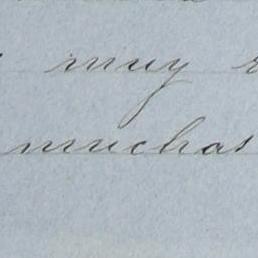 muy
muchas